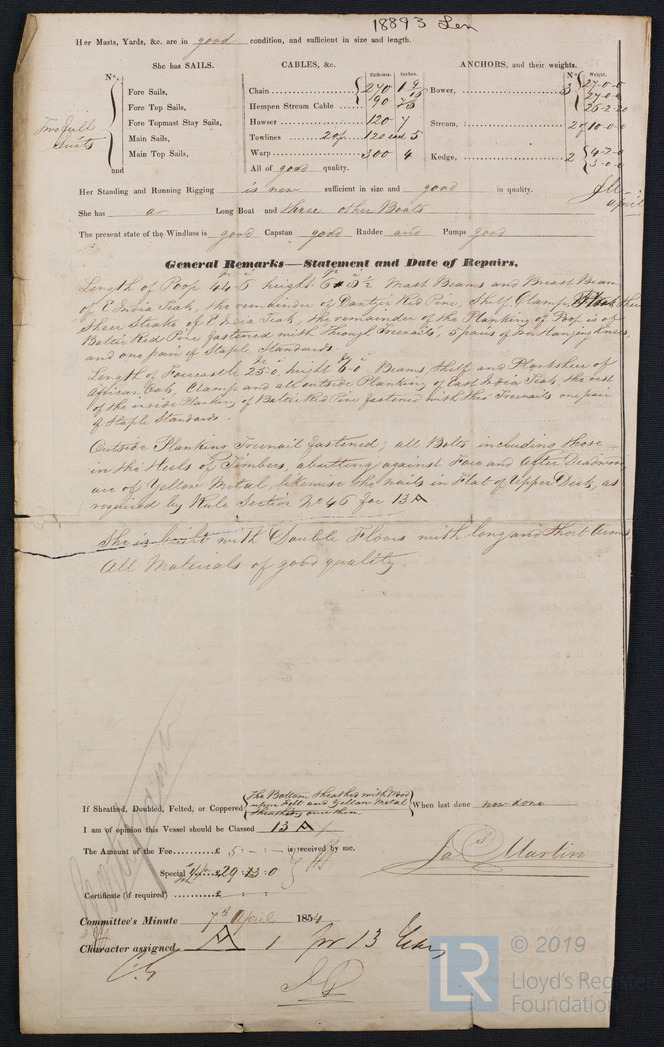 18893 Len
Her Masts, Yards, &c. are in good condition, and sufficient in size and length.
She has SAILS.
CABLES, &c.
ANCHORS, and their weights.
No.
Fathoms. Inches.
No. Weight.
Two full
Suits
and
Fore Sails,
Fore Top Sails,
Fore Topmast Stay Sails,
Main Sails,
Main Top Sails,
Chain 270 1 9/16
Hempen Stream Cable 90
Hawser 120 7
Towlines 2 of 120 each 5
Warp 300 4
All of good quality.
Bower, 3 27-0-0
27-0-0
26-2-20
Stream, 2 of 10-0-0
Kedge, 2 4-2-0
3-0-0
Her Standing and Running Rigging is new sufficient in size and good in quality.
JM
April
She has a Long Boat and three other Boats
The present state of the Windlass is good Capstan good Rudder and Pumps good
General Remarks—Statement and Date of Repairs.
Length of Poop 44-6 height 6 5½ Mast Beams and Breast Beam
of E India Teak, the remainder of Dantzic Red Pine, Shelf, Clamp,
Sheer Strake of E. India Teak, the remainder of the Planking of Poop is of
Baltic Red Pine fastened with Through Treenails, 5 pairs of Iron Hanging knees,
and one pair of Staple Standards.
Length of Forecastle 25-0, height 6-0. Beams Shelf and Planksheer of
African Oak, Clamp and all outside Planking of East India Teak the rest
of the inside Planking of Baltic Red Pine fastened with thro' Treenails one pair
of Staple Standards.
Outside Planking Treenail fastened; all Bolts including those
in the Heels of Timbers, abutting against Fore and After Deadwood
are of Yellow Metal, likewise the nails in Flat of Upper Deck, as
required by Rule Section No 46 for 13 A
She is built with Double Floors with long and short arms
All Materials of good quality.
If Sheathed, Doubled, Felted, or Coppered The Bottom Sheathed with Wood
upon Felt and Yellow Metal
Sheathing over them
When last done now done
I am of opinion this Vessel should be Classed 13 A
The Amount of the Fee......£ 5 : - : - is received by me,
Special £29 : 13 : 0
Jas Martin
Certificate (if required) ......£ : :
Committee's Minute 7th April 1854
Character assigned A 1 for 13 Years
© 2019
LR
Lloyd's Register
Foundation